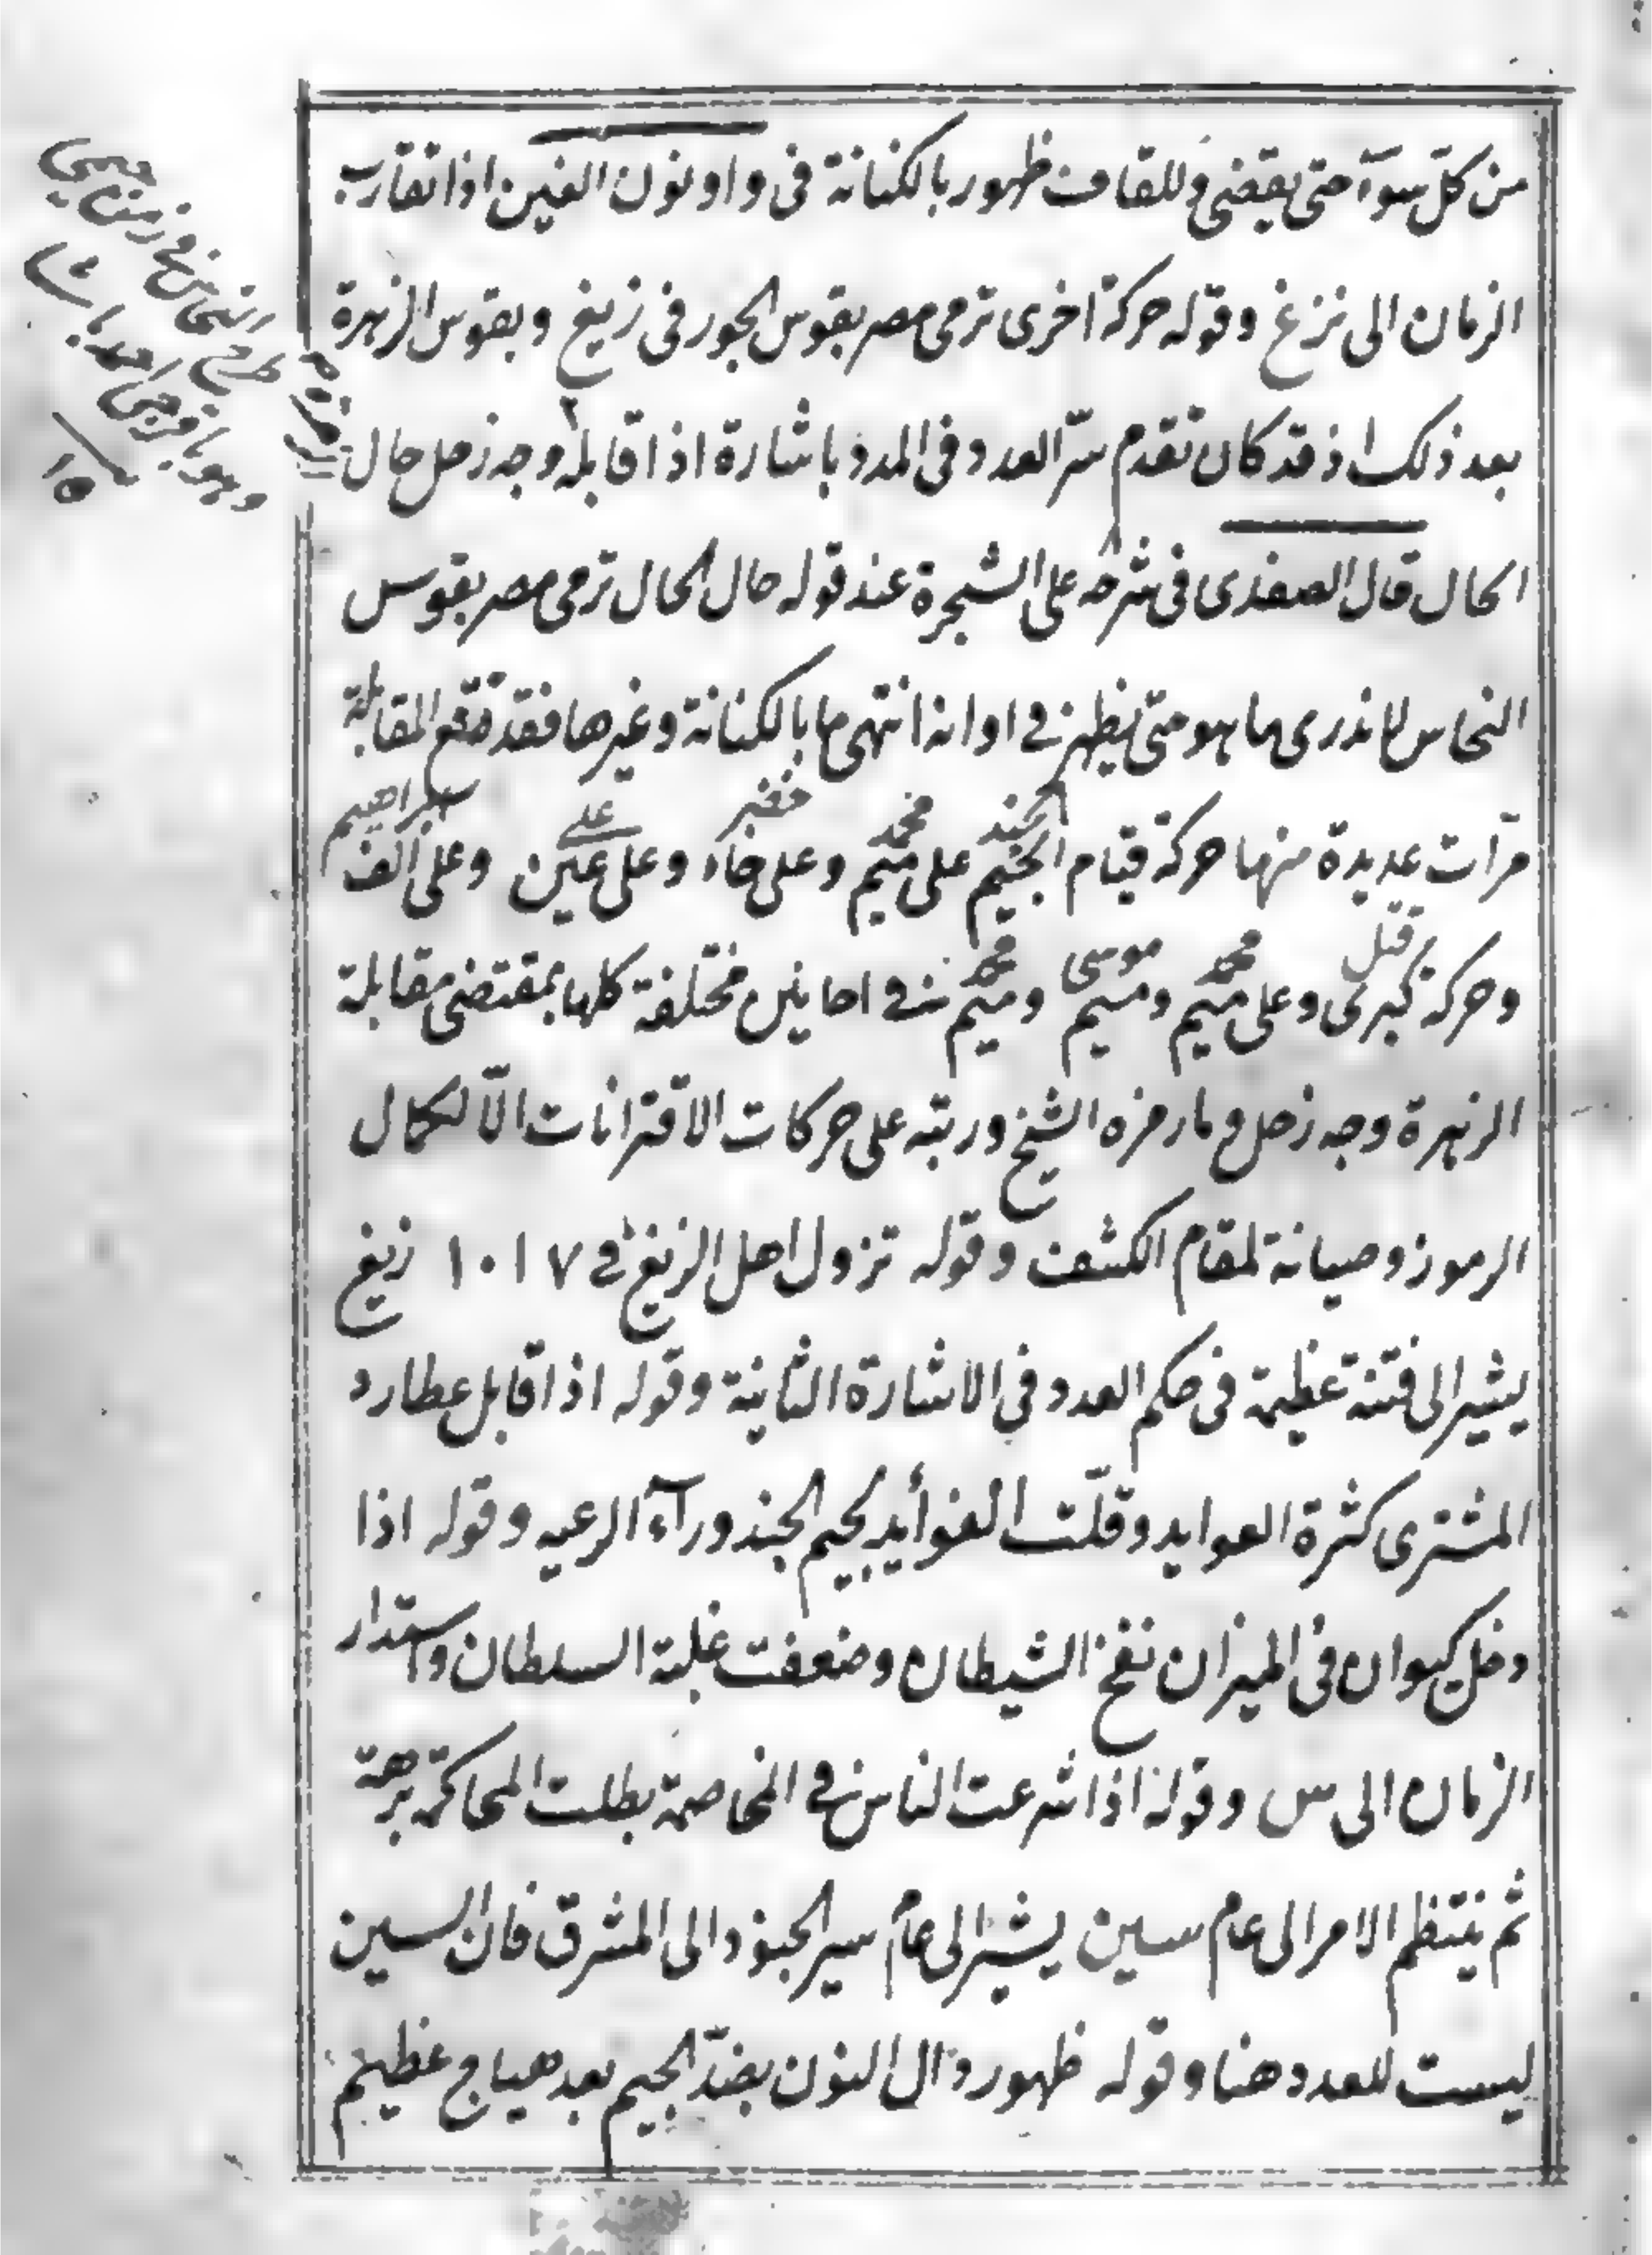 من كل سوء حتى يقضى وللقاف ظهور بالكنانة فى واو نون الغين اذا تقارب
الزمان الى نزغ وقوله حركة اخرى ترمى مصر بقوس الجور فى زيغ وبقوس الزهرة
بعد ذلك اذ قد كان تقدم سرّ العدد فى المدد باشارة اذا قابله وجه زحل حال
الحال قال الصفدى فى شرحه على الشجرة عند قوله حال الحال ترمى مصر بقوس
النحاس لا ندرى ما هو متى يظهر فى اوانه انتهى ما بالكنانة وغيرها فقد تقع المقابلة
مرّات عديدة منها حركة قيام الجيم على ميم وعلى خاء وعلى عين وعلى الف
الجند محمد خضر على ابراهيم
وحركة كبرى وعلى ميم وميم وميم فى احايين مختلفة كلها بمقتضى مقابلة
قتل محمد موسى محمد
الزهرة وجه زحل وما رمزه الشيخ ورتبه على حركات الاقترانات الّا لكمال
الرموز وصيانة لمقام الكشف وقوله نزول اهل الزيغ فى ١٠١٧ زيغ
يشير الى فتنة عظيمة فى حكم العدد فى الاشارة الثانية وقوله اذا قابل عطارد
المشترى كثرة العوايد وقلّت الفوأيد بجيم الجند ورآء الرعيه وقوله اذا
دخل كيوان فى الميزان نفخ الشيطان وضعفت غلبة السلطان واستدار
الزمان الى س وقوله اذا شرعت الناس فى المخاصمة بطلت المحاكمة برهة
ثم ينتظم الامر الى عام سين يشير الى عام سير الجنود الى المشرق فان السين
ليست للعدد هنا وقوله ظهور دال النون بضدّ الجيم بعد هياج عظيم
النحاس فى زمن
احمد باشا
١٥